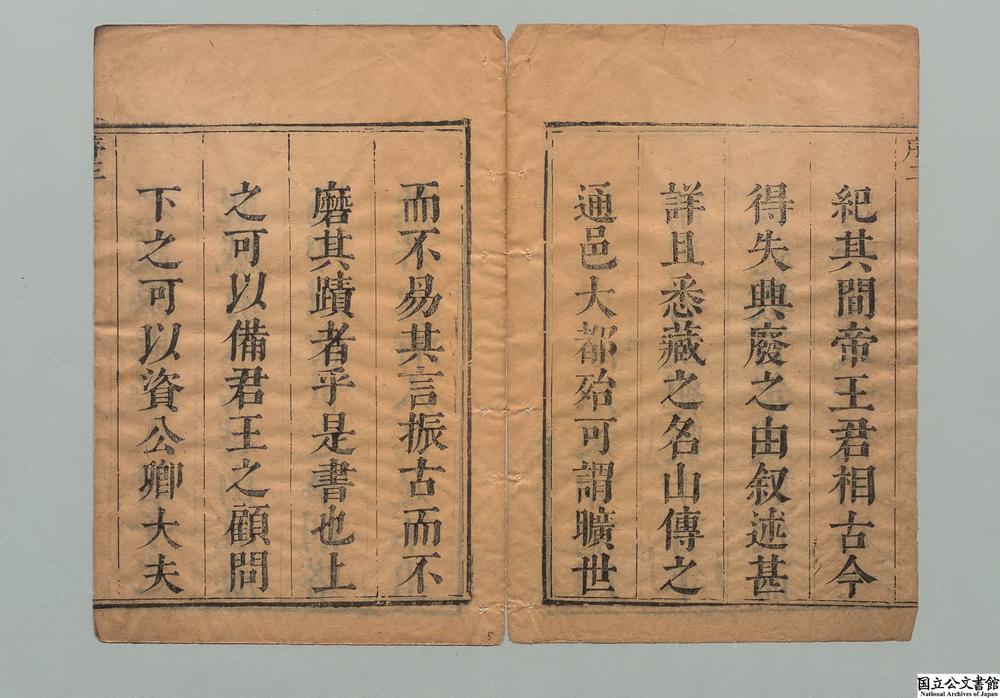 紀其間帝王君相古今
得失興廢之由叙述甚
詳且悉藏之名山傳之
通邑大都殆可謂曠世
而不易其言振古而不
磨其蹟者乎是書也上
之可以備君王之顧問
下之可以資公卿大夫
序二
序三
5
国立公文書館
National Archives of Japan